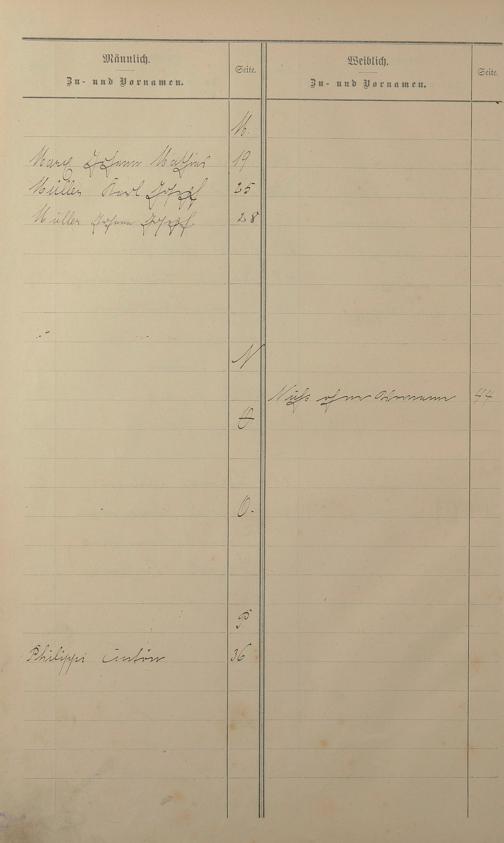 Männlich.
Zu- und Vornamen.
Seite.
Weiblich.
Zu- und Vornamen.
Seite.
M.
Marx Johann Mathias 19
Müller Karl Josef 25
Müller Johann Josef 28
N
ohne Vornamen 44
O.
P
Philippi Anton 36